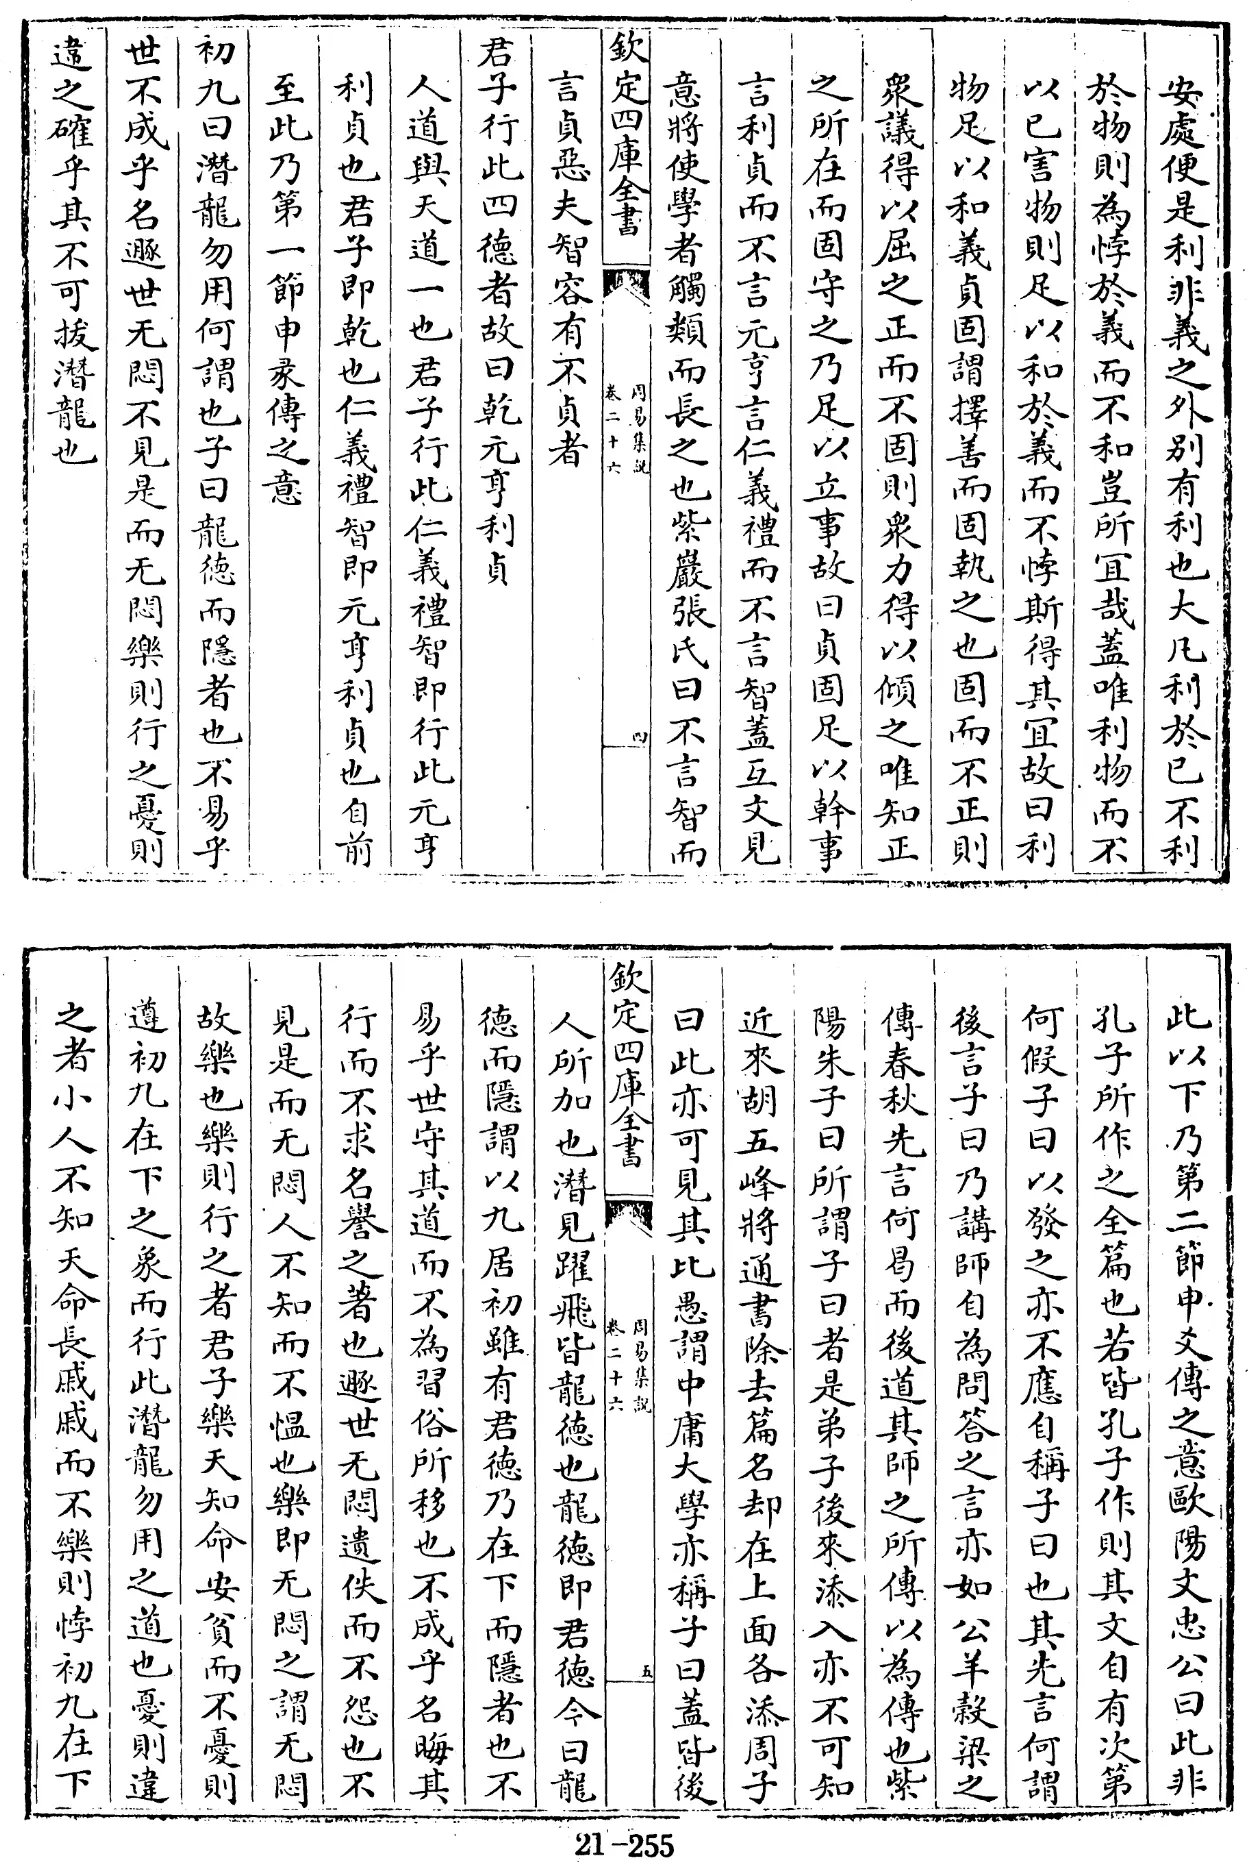 安處便是利非義之外別有利也大凡利於已不利
於物則為悖於義而不和豈所宜哉蓋唯利物而不
以已害物則足以和於義而不悖斯得其宜故曰利
物足以和義貞固謂擇善而固執之也固而不正則
衆議得以屈之正而不固則衆力得以傾之唯知正
之所在而固守之乃足以立事故曰貞固足以幹事
言利貞而不言元亨言仁義禮而不言智蓋互文見
意將使學者觸類而長之也紫巖張氏曰不言智而
欽定四庫全書
周易集說
卷二十六
四
言貞惡夫智容有不貞者
君子行此四德者故曰乾元亨利貞
人道與天道一也君子行此仁義禮智即行此元亨
利貞也君子即乾也仁義禮智即元亨利貞也自前
至此乃第一節申彖傳之意
初九曰潛龍勿用何謂也子曰龍德而隱者也不易乎
世不成乎名遯世无悶不見是而无悶樂則行之憂則
違之確乎其不可拔潛龍也
此以下乃第二節申爻傳之意歐陽文忠公曰此非
孔子所作之全篇也若皆孔子作則其文自有次第
何假子曰以發之亦不應自稱子曰也其先言何謂
後言子曰乃講師自為問答之言亦如公羊穀梁之
傳春秋先言何曷而後道其師之所傳以為傳也紫
陽朱子曰所謂子曰者是弟子後來添入亦不可知
近來胡五峰將通書除去篇名却在上面各添周子
曰此亦可見其比愚謂中庸大學亦稱子曰蓋皆後
欽定四庫全書
周易集說
卷二十六
五
人所加也潛見躍飛皆龍德也龍德即君德今曰龍
德而隱謂以九居初雖有君德乃在下而隱者也不
易乎世守其道而不為習俗所移也不成乎名晦其
行而不求名譽之著也遯世无悶遺佚而不怨也不
見是而无悶人不知而不愠也樂即无悶之謂无悶
故樂也樂則行之者君子樂天知命安貧而不憂則
遵初九在下之象而行此潛龍勿用之道也憂則違
之者小人不知天命長戚戚而不樂則悖初九在下
21-255